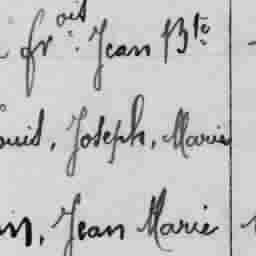 fr.ois Jean Bte
ouis, Joseph, Marie
in, Jean Marie